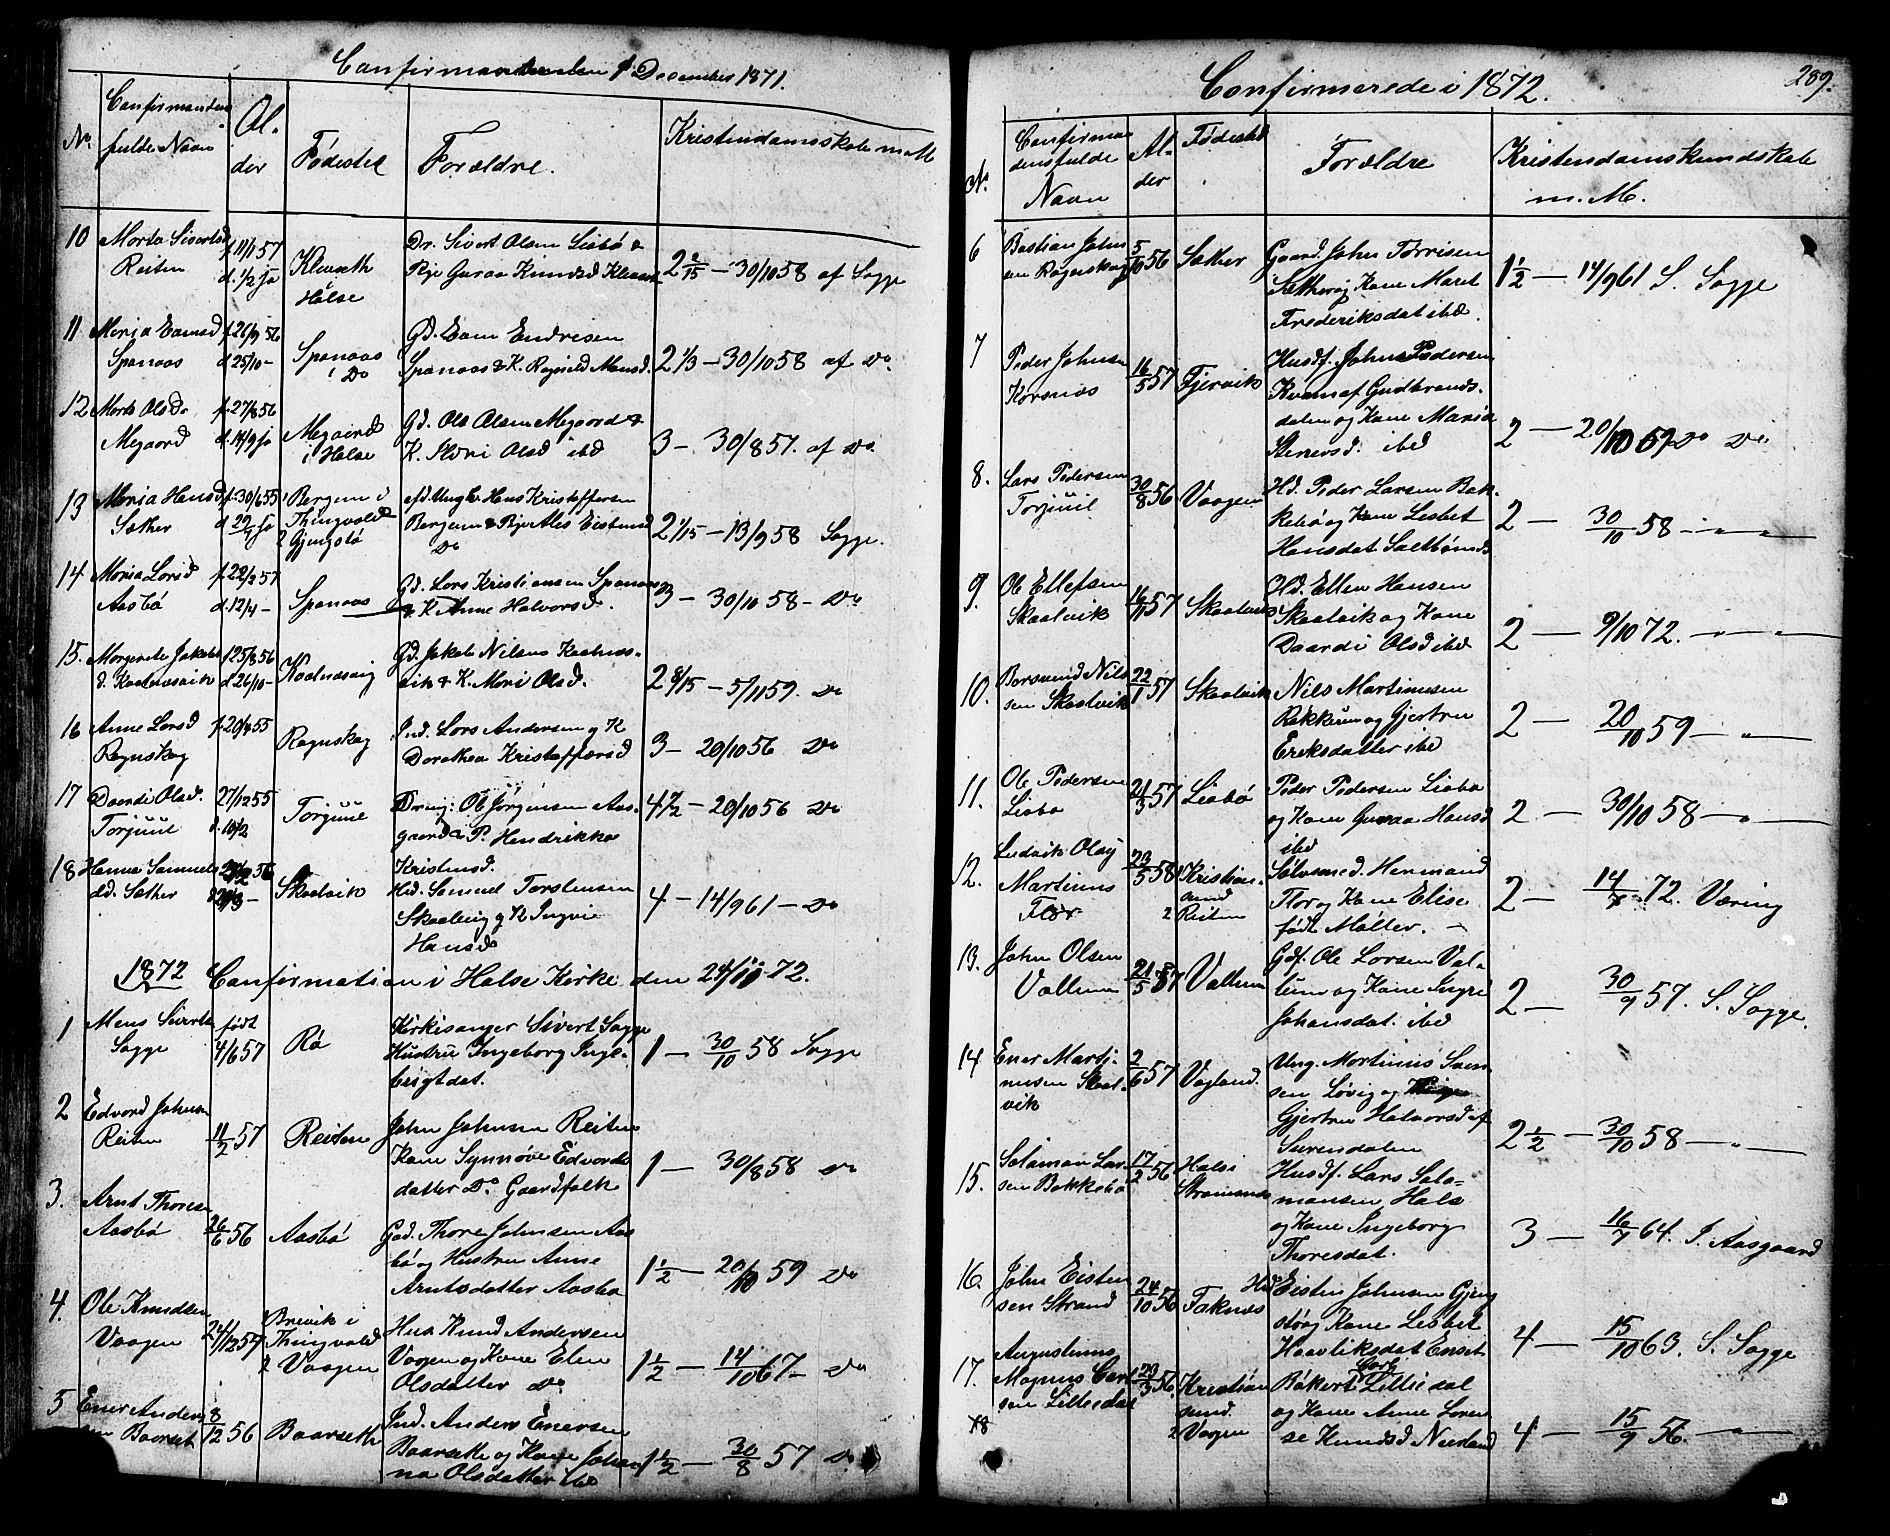 Confirmanderne den 1 December 1871.
No.
Confirmandens
fulde Navn
Al-
der
Födested
Forældre.
Kristendomsskab m M
10 Marta Sivertsd f. 11/1 57
Reiten d. 1/2 ja
Klevseth
Halse
Dr. Sivert Olsen Liabö &
Pige Guraa Knudsd Klevset
2 2/15 — 30/10 58 af Sogge
11 Maria Evensd f 26/9 56
Spanaas d 25/10 -
Spanaas
Do
Gd. Even Endresen
Spanaas & K. Ragnild Monsd.
2 1/3 — 30/10 58 af Do
12 Marta Olsd. f. 27/8 56
Megaard d. 14/9 ja
Megaard
i Halse
Gd. Ole Olsen Megaard &
K. Mari Olsd ibd
3 — 30/8 57. af Do.
13 Maria Hansd f. 30/6 55
Sæther
Bergem i
Thingvold
2 Gjengstö
Ungk Hans Kristoffersen
Bergem & Pige Ales Eistensd
Do
2 1/15 — 13/9 58 Sogge.
14 Maria Larsd f. 22/2 57
Aasbö d. 12/4 -
Spanaas
Gd. Lars Kristiansen Spanaas
& K Anne Halvorsd.
3 — 30/10 58 — Do
15. Margrete Jakobs f 25/8 56
d. Kaalvasvik d 26/10 -
Kaalvasvig
Gd. Jakob Nilsen Kaalvas-
vik & K. Mari Olsd.
2 8/15 — 5/11 59. Do
16 Anne Larsd
Rognskog
Rognskog
Ind. Lars Andersen og K
Dorothea Kristoffersd
3 — 20/10 56 Do
17 Daardi Olsd. 27/12 55
Torjuul d. 10/2
Torjuul
Dreng: Ole Jörgensen Aas-
gaard & P. Hendrikka
Kristensd.
4 1/2 — 20/10 56 Do
18 Hanna Samuels
dd. Sæther
Skaalvik
Hd. Samuel Torstensen
Skaalvig & K Ingri
Hansd
4 — 14/9 61 — Do
1872 Confirmation i Halse Kirke den 24/11 72.
1 Mons Siverts
Sogge
født
4/6 57
Rö
Kirkesanger Sivert Sogge
Hustru Ingeborg Inge-
brigtdat.
1 — 30/10 58 Sogge
2 Edvard Johnsen
Reiten
11/2 57
Reiten
John Johnsen Reiten
Kone Synnöve Edvards
datter Do Gaardfolk
1 — 30/8 58 Do
3. Arnt Thoresen
Aasbö
26/6 56
Aasbö
Gd. Thore Johnsen Aas
bö og Hustru Anne
Arntsdatter Aasbö
1 1/2 — 20/10 59 Do
4. Ole Knudsen
Vaagen
24/12 57
Brevik i
Thingvold
2 Vaagen
Hus Knud Andersen
Vaagen og Kone Elen
Olsdatter Do
1 1/2 — 14/10 67 — Do
5 Ener Anders
sen Baarset
8/12 56
Baarseth
Ind. Anders Enersen
Baarseth og Kone Johan
na Olsdatter ibd
1 1/2 — 30/8 57 Do
Confirmerede i 1872.
289.
N.
Confirman
dens fulde
Navn
Al-
der
Fødested
Forældre
Kristendomskundskab
m. M.
6 Bastian John
sen Rognskog
5/10 56
Sæther
Gaard. John Torrisen
Sæther og Kone Maret
Frederiksdat ibd.
1 1/2 — 14/9 61 S. Sogge
7 Peder Johnsen
Korsnæs
16/5 57
Fjervik
Husf. John Pedersen
Kvam af Gudbrands-
dalen og Kone Maria
Stenersd. ibd
2 — 20/10 Do Do
8. Lars Pedersen
Torjuul
30/8 56
Vaagen
Hd. Peder Larsen Bak-
kebö og Kone Lesbet
Hansdat Saltbönes
2 — 30/10 58 — " —
9. Ole Ellefsen
Skaalvik
16/11 57
Skaalvik
Hd. Ellen Hansen
Skaalvik og Kone
Daardi Olsd ibd
2 — 9/10 72. — " —
10. Borsvend Nils
sen Skaalvik
22/1 57
Skaalvik
Nils Martinusen
Rakkum og Gjertru
Eriksdatter ibd
2 — 20/10 59 — " —
11. Ole Pedersen
Liabö
21/3 57
Liabö
Peder Pedersen Liabö
og Kone Guraa Hansd
ibd
2 — 30/10 58 — " —
12. Ludvik Olay
Martinus
Flor
23/5 58
Kristian-
sund
2 Reiten
Sølvsmed. Hermand
Flor og Kone Elise
født Møller. —
2 — 14/7 72. Væring
13. John Olsen
Vallum
21/5 57
Vallum
Gdf. Ole Larsen Val-
lum og Kone Ingri
Johansdat. ibd
2 — 30/9 57. S. Sogge.
14 Ener Marti-
nusen Skaal-
vik
2/6 57
Vagland.
Ung. Martinus Sven
sen Løvig og
Gjertru Halvorsd af
Surendalen
2 1/2 — 30/10 58 — " —
15. Salaman Lar
sen Bakkebö
17/2 56
Halse
Strømsnes
Husf. Lars Sala-
monsen Hals
og Kone Ingeborg
Thoresdat.
3 — 16/7 64. J. Aasgaard
16. John Eisten
sen Strand
24/10 56
Taknæs
Hd Eistin Johnsen Gjeng
stö og Kone Lisbet
Haavliksdat Enset
4 — 15/10 63. S. Sogge
17. Augustinus
Magnus Carl
sen Lilledal
23/3 56
Kristian
sund.
2 Vaagen
Carl
Bökert Lilledal
og Kone Anne Loren
se Knudsd Neerland
4 — 15/9 56. — " —
18